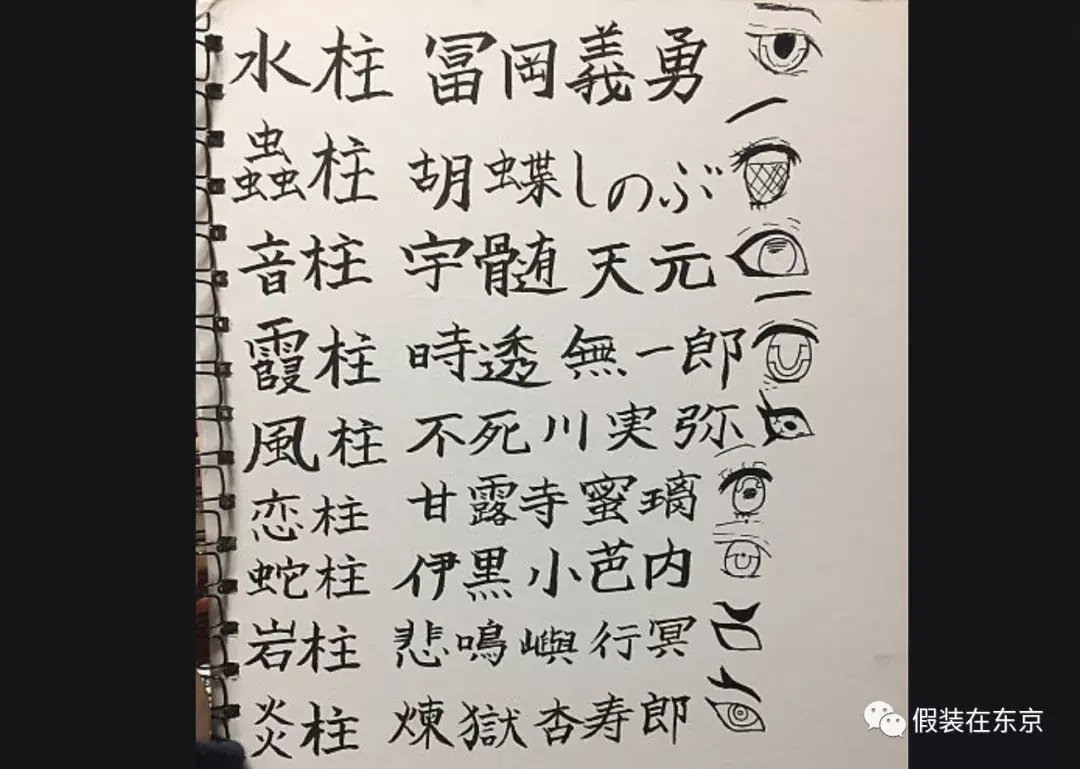 水柱 冨岡義勇
蟲柱 胡蝶しのぶ
音柱 宇髄天元
霞柱 時透無一郎
風柱 不死川実弥
恋柱 甘露寺蜜璃
蛇柱 伊黒小芭内
岩柱 悲鳴嶼行冥
炎柱 煉獄杏寿郎
假装在东京